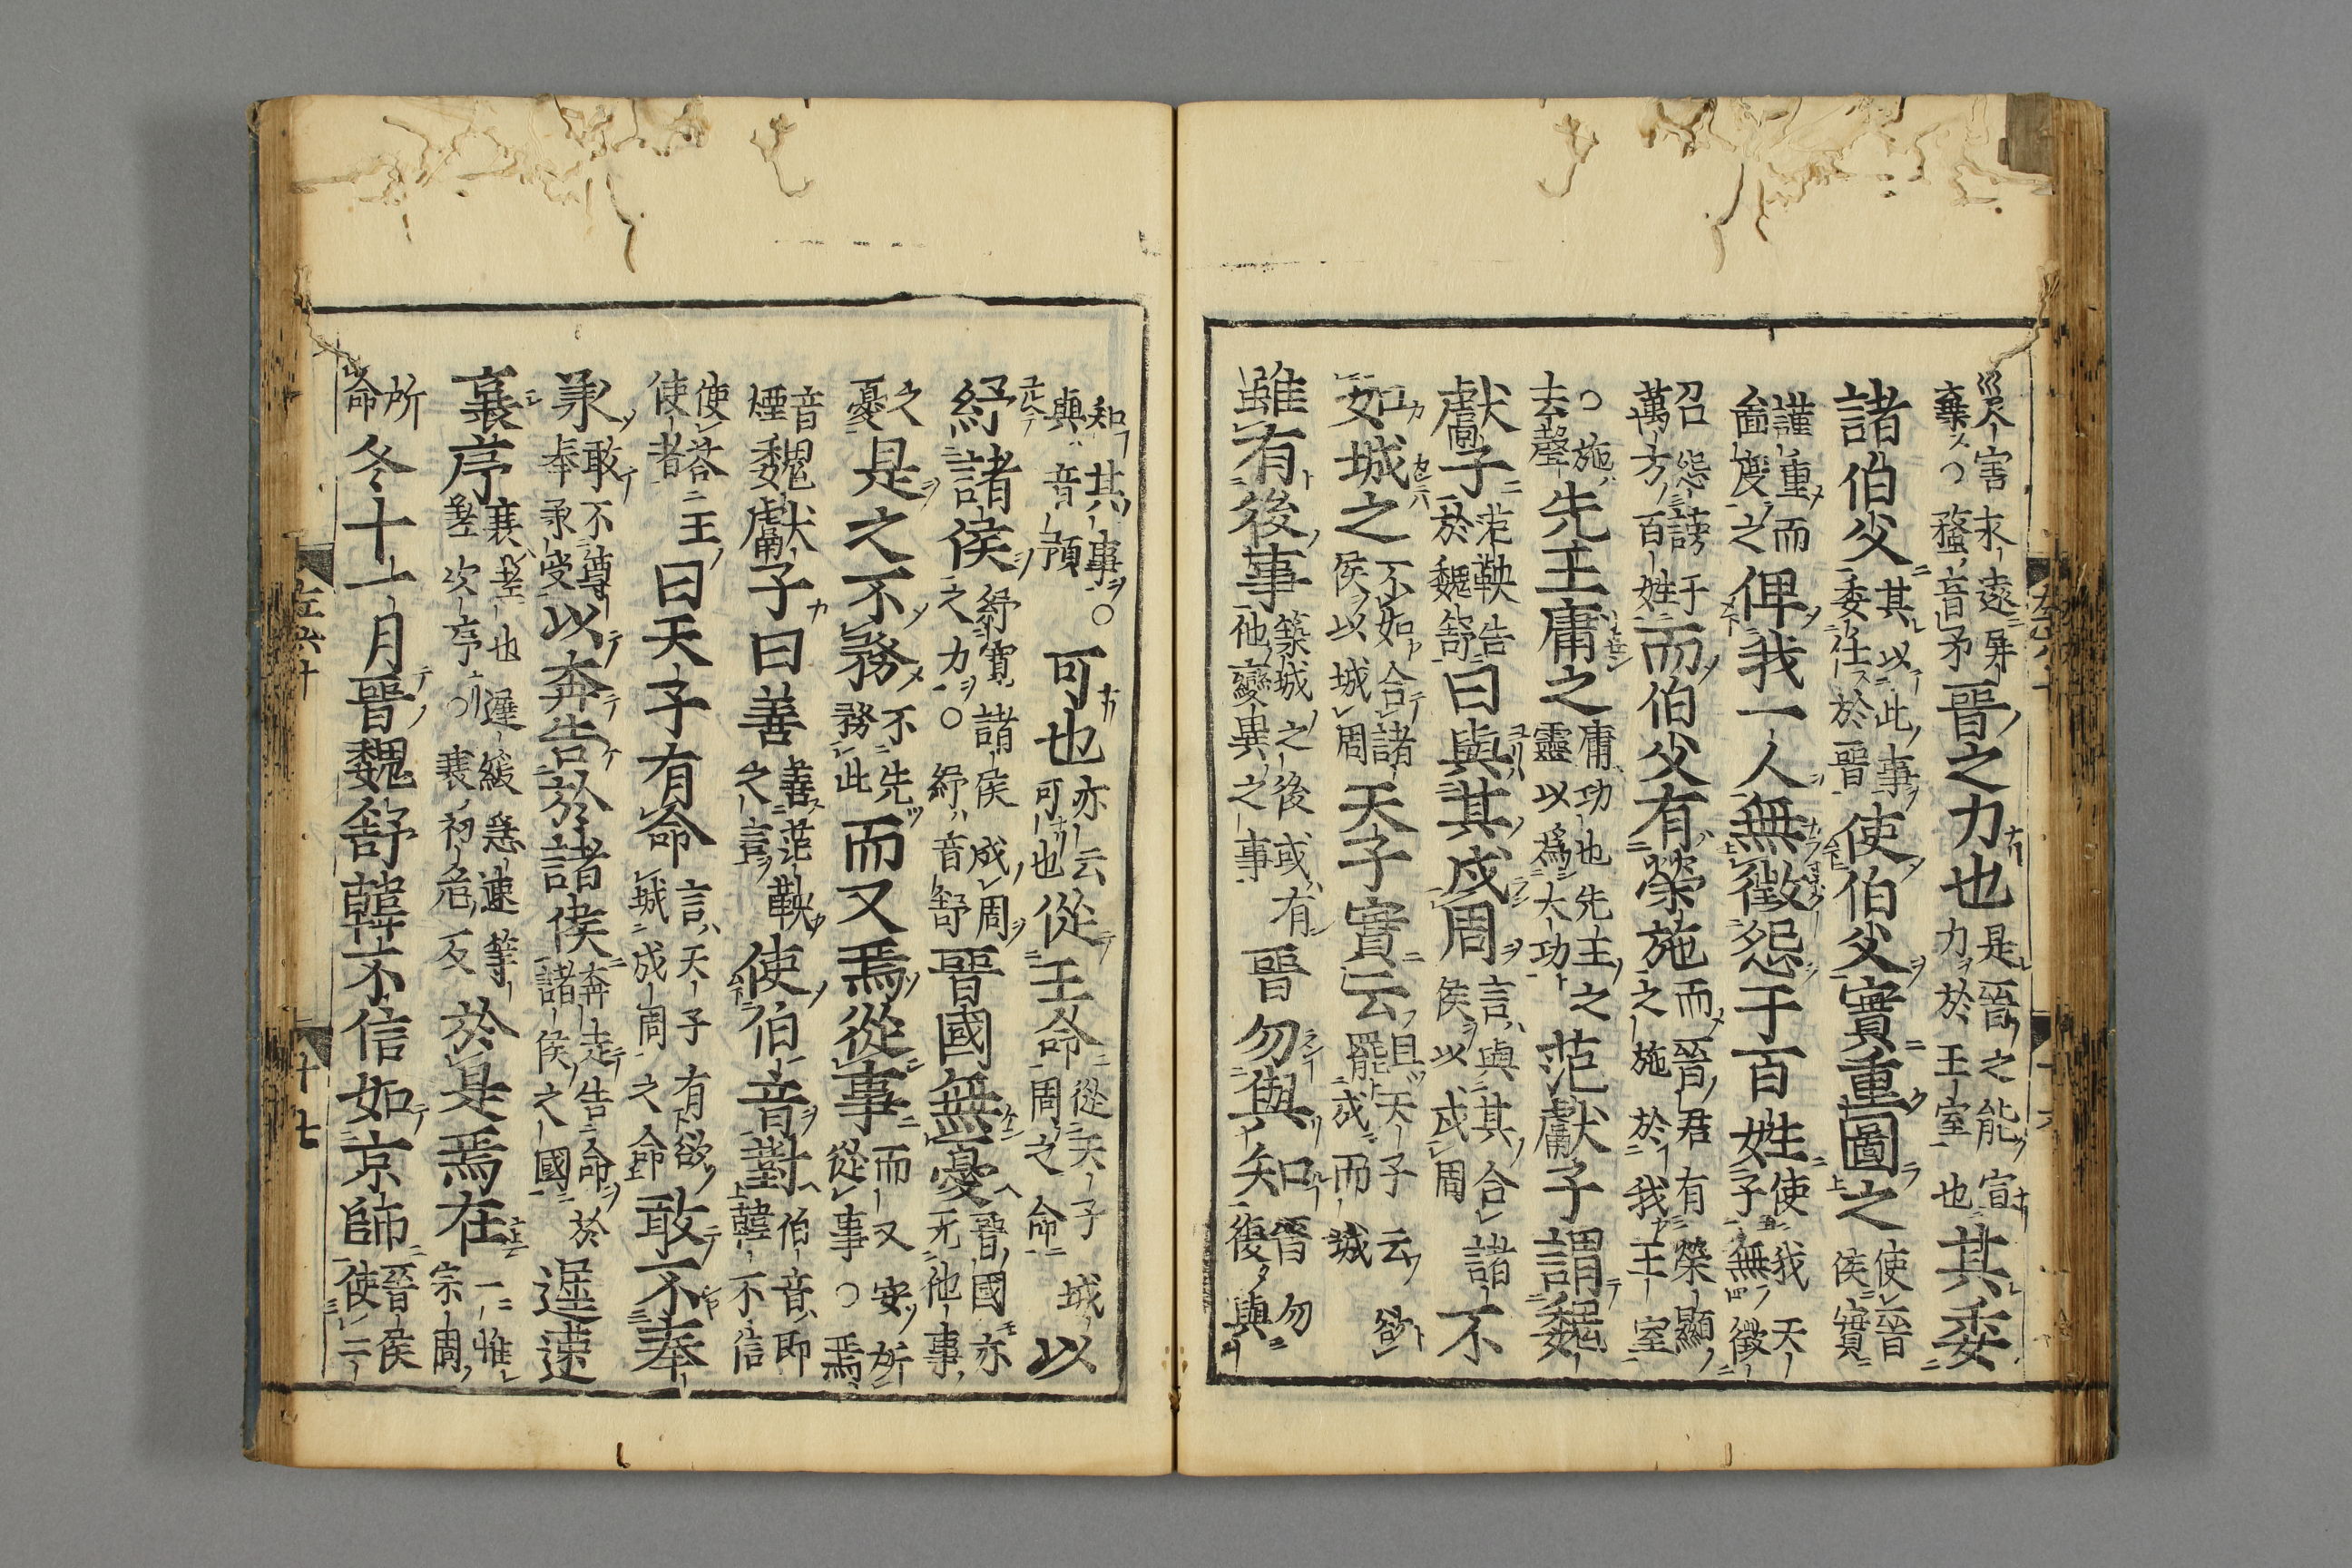 災害求遠屏棄○蝥音矛晉之力也是晉之能宣力於王室也其委
諸伯父其以此事委任於晉使伯父實重圖之使晉侯實
謹重而啚度之俾我一人無徵怨于百姓使我天子無徵
召怨謗于萬方百姓而伯父有榮施而晉君有榮顯之施於我王室
○施去聲先王庸之庸功也先王之靈以爲大功范獻子謂魏
獻子范鞅告於魏舒曰與其戍周言與其合諸侯以戍周不
如城之不如合諸侯以城周天子實云且天子云欲罷戍而城
雖有後事築城之後或有他變異之事晉勿與知晉勿復與
知其事○與音預可也亦云可也從王命從天子城周之命以
紓諸侯紓寬諸侯成周之力○紓音舒晉國無憂晉國亦无他事
之憂是之不務不先務此而又焉從事而又安所從事○焉
音煙魏獻子曰善善范鞅之言使伯音對伯音即韓不信
使荅王使者曰天子有命言天子有欲城成周之命敢不奉
承敢不尊奉承受以奔告於諸侯奔走告命於諸侯之國遲速
衰序衰差也遲緩急速等差次序○衰初危反於是焉在一惟宗周
所命冬十一月晉魏舒韓不信如京師晉侯使二
左六十 十七